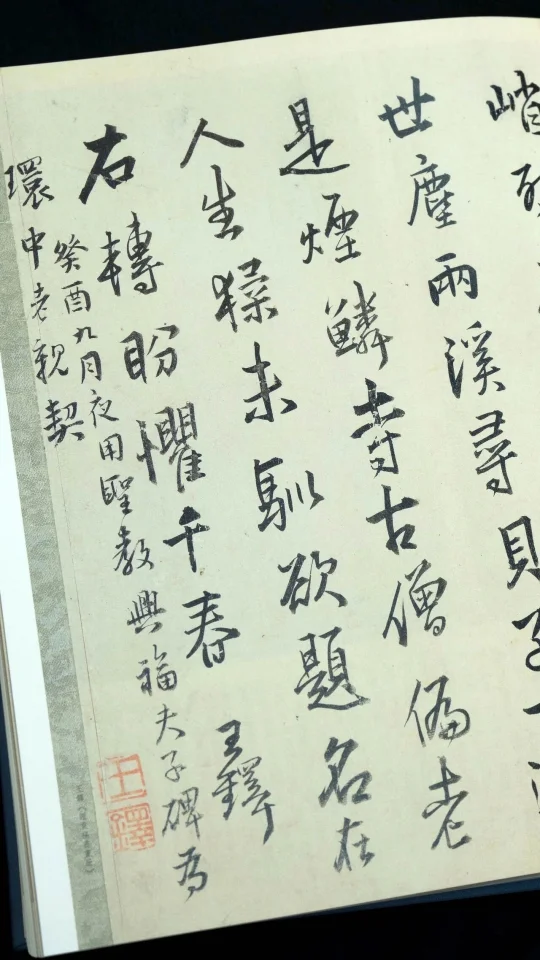 峭
世塵兩溪尋
是煙鱗寺古僧偏老
人生猱未馴欲題名在
右轉盼懼千春 王鐸
癸酉九月夜用聖教興福夫子碑為
環中老親契
王鐸